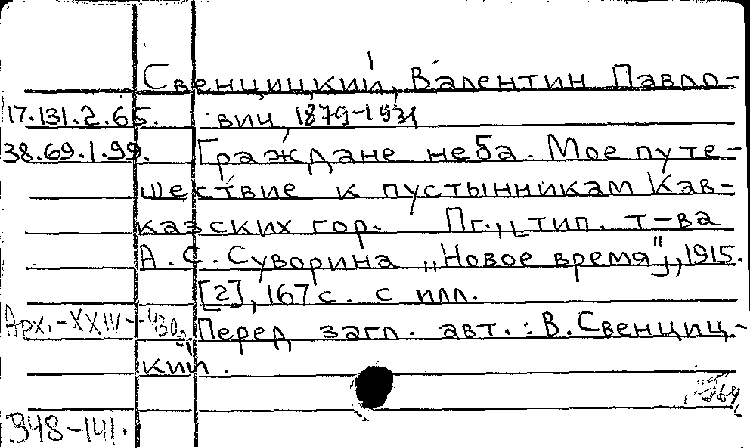 Свенцицкий, Валентин Павло-
17.131.2.65. вич, 1879-1931
38.69.1.99. Граждане неба. Мое путе-
шествие к пустынникам Кав-
казских гор. Пг., [тип. т-ва
А.С. Суворина „Новое время"], 1915.
[2], 167 с. с илл.
Арх.-XXIV- Перед загл. авт.: В. Свенциц-
кий.
В48-141.